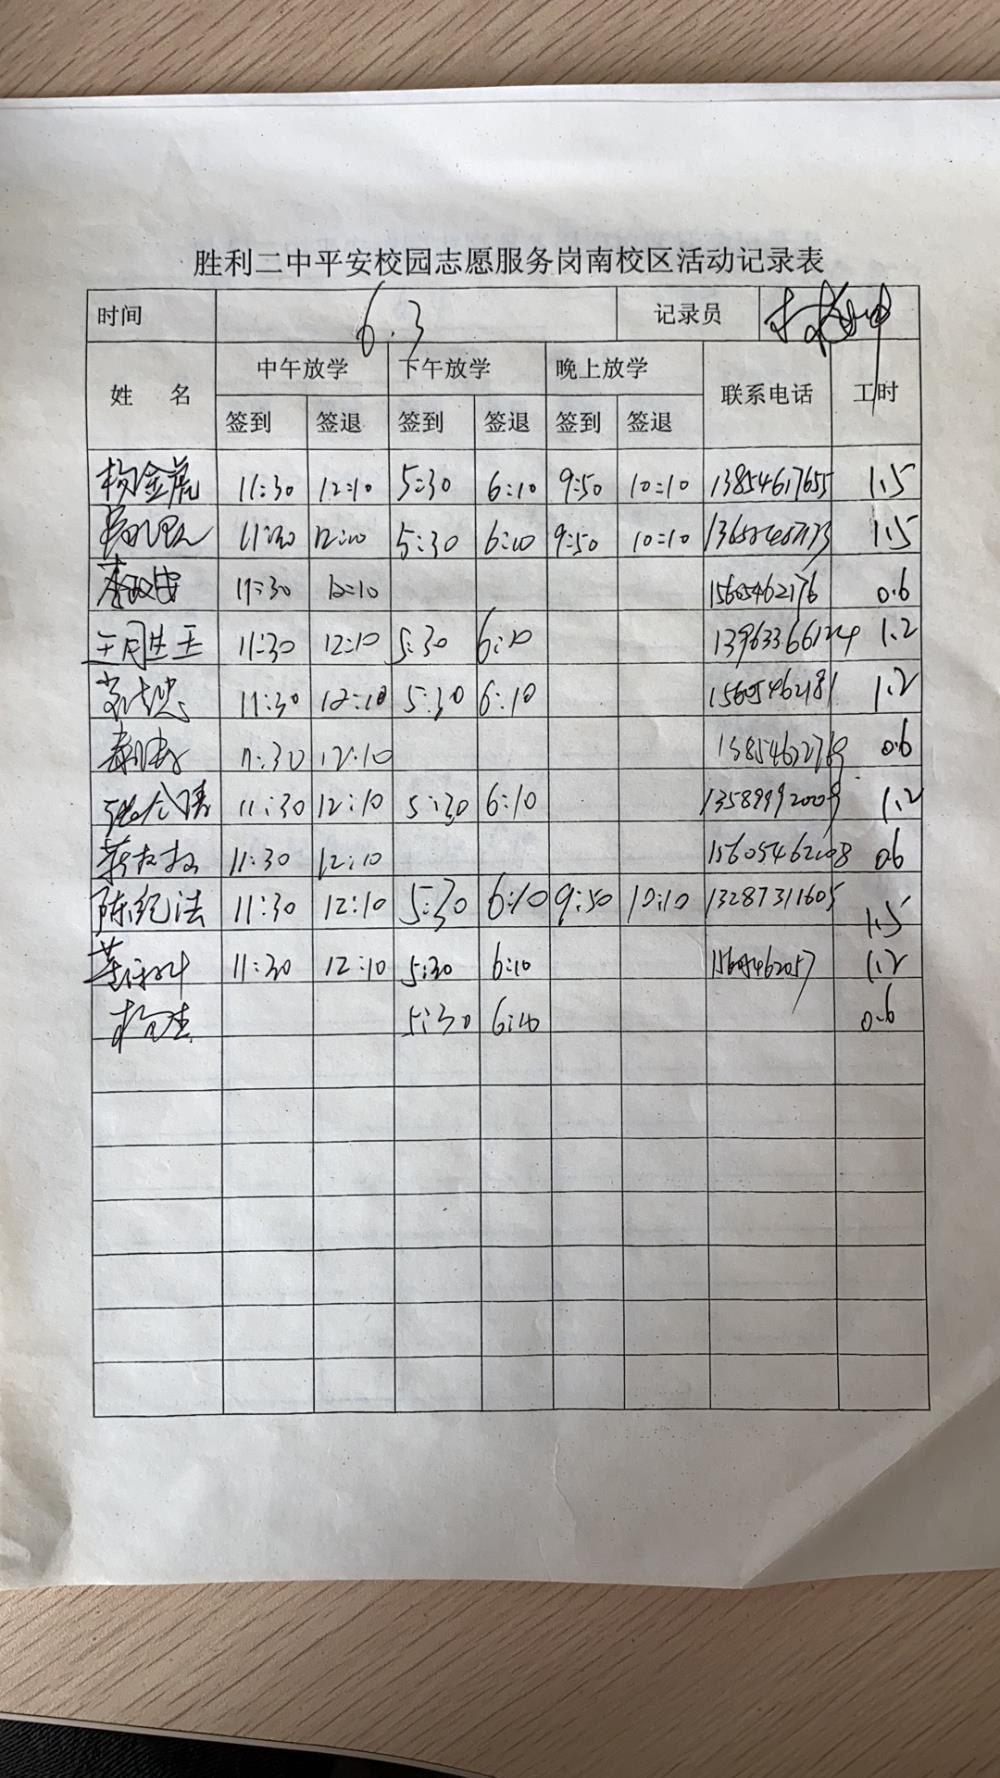 胜利二中平安校园志愿服务岗南校区活动记录表
时间 6.3 记录员
姓 名 中午放学 下午放学 晚上放学 联系电话 工时
签到 签退 签到 签退 签到 签退
杨金虎 11:30 12:10 5:30 6:10 9:50 10:10 13854617655 1.5
11:30 12:10 5:30 6:10 9:50 10:10 1.5
李政安 11:30 12:10 15605462176 0.6
11:30 12:10 5:30 6:10 13963366124 1.2
11:30 12:10 5:30 6:10 15605462181 1.2
11:30 12:10 15854622769 0.6
11:30 12:10 5:30 6:10 13589992009 1.2
11:30 12:10 15605462108 0.6
陈纪法 11:30 12:10 5:30 6:10 9:50 10:10 13287311605 1.5
11:30 12:10 5:30 6:10 15605462057 1.2
5:30 6:10 0.6